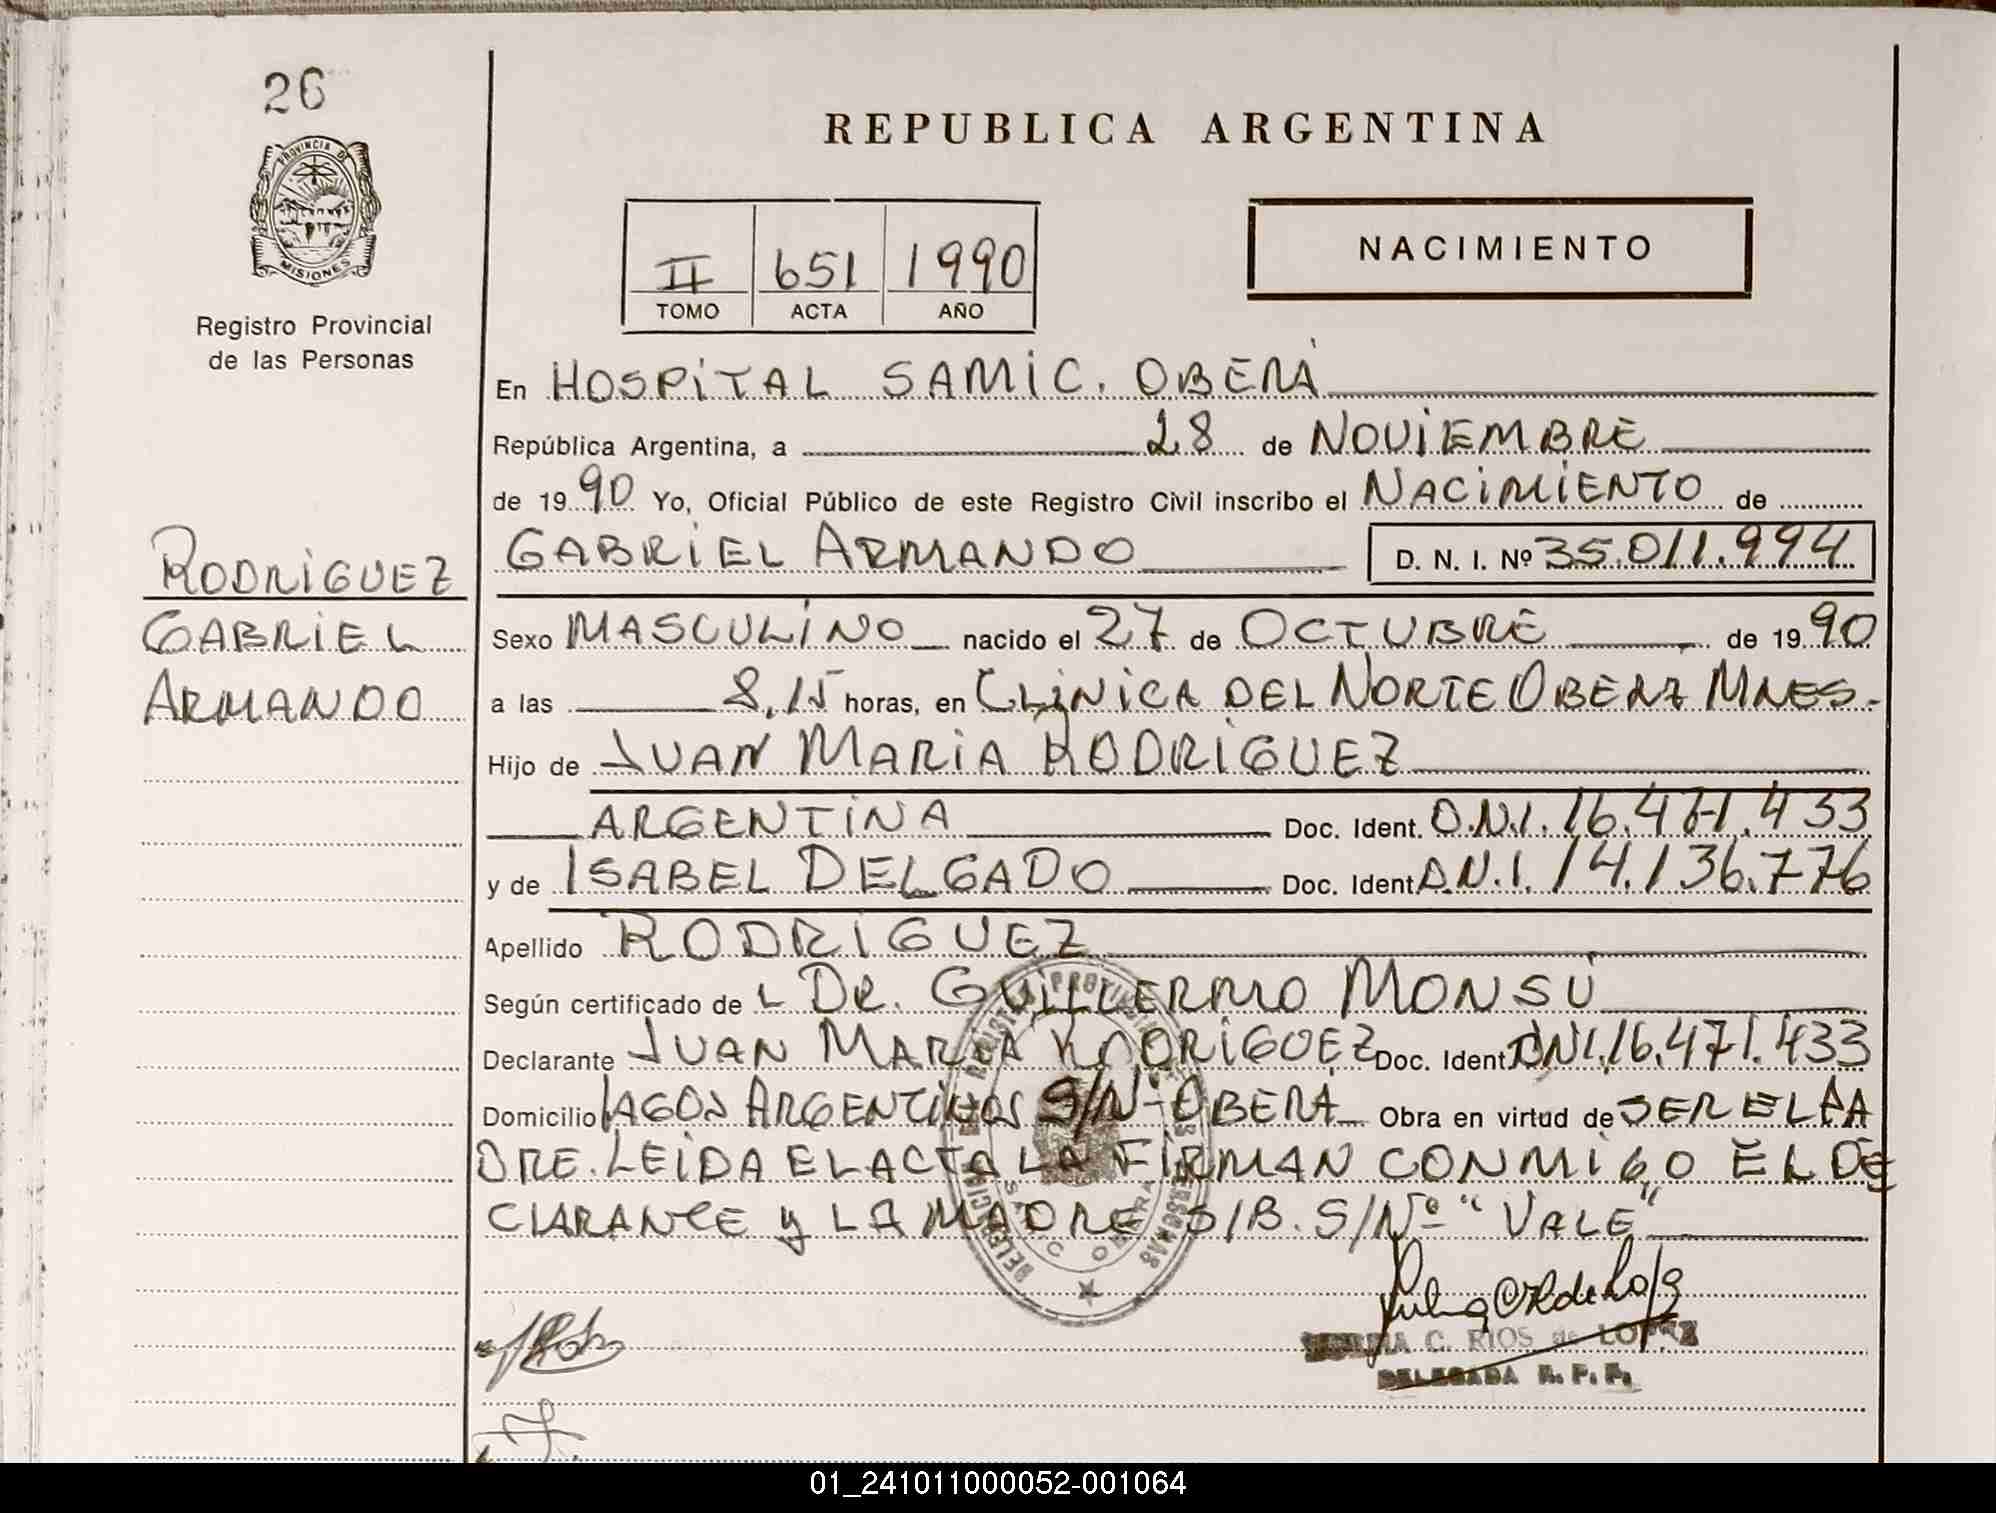 26
PROVINCIA DE
MISIONES
Registro Provincial
de las Personas
REPUBLICA ARGENTINA
II 651 1990
TOMO ACTA AÑO
NACIMIENTO
En HOSPITAL SAMIC. OBERÁ
República Argentina, a 28 de NOVIEMBRE
de 1990 Yo, Oficial Público de este Registro Civil inscribo el NACIMIENTO de
RODRIGUEZ
GABRIEL
ARMANDO
GABRIEL ARMANDO D. N. I. Nº 35.011.994
Sexo MASCULINO nacido el 27 de OCTUBRE de 1990
a las 8,15 horas, en CLINICA DEL NORTE OBERA MNES.-
Hijo de JUAN MARIA RODRIGUEZ
ARGENTINA Doc. Ident. D.N.I. 16.471.433
y de ISABEL DELGADO Doc. Ident D.N.I. 14.136.776
Apellido RODRIGUEZ
Según certificado de L Dr. GUILLERMO MONSÚ
Declarante JUAN MARIA RODRIGUEZ Doc. Ident DNI.16.471.433
Domicilio LAGOS ARGENTINOS S/Nº OBERÁ Obra en virtud de SER EL PA
DRE. LEIDA EL ACTA LA FIRMAN CONMIGO EL DE
CLARANTE y LA MADRE S/B. S/Nº "VALE"
C. RIOS de LOPEZ
DELEGADA R. P. P.
01_241011000052-001064